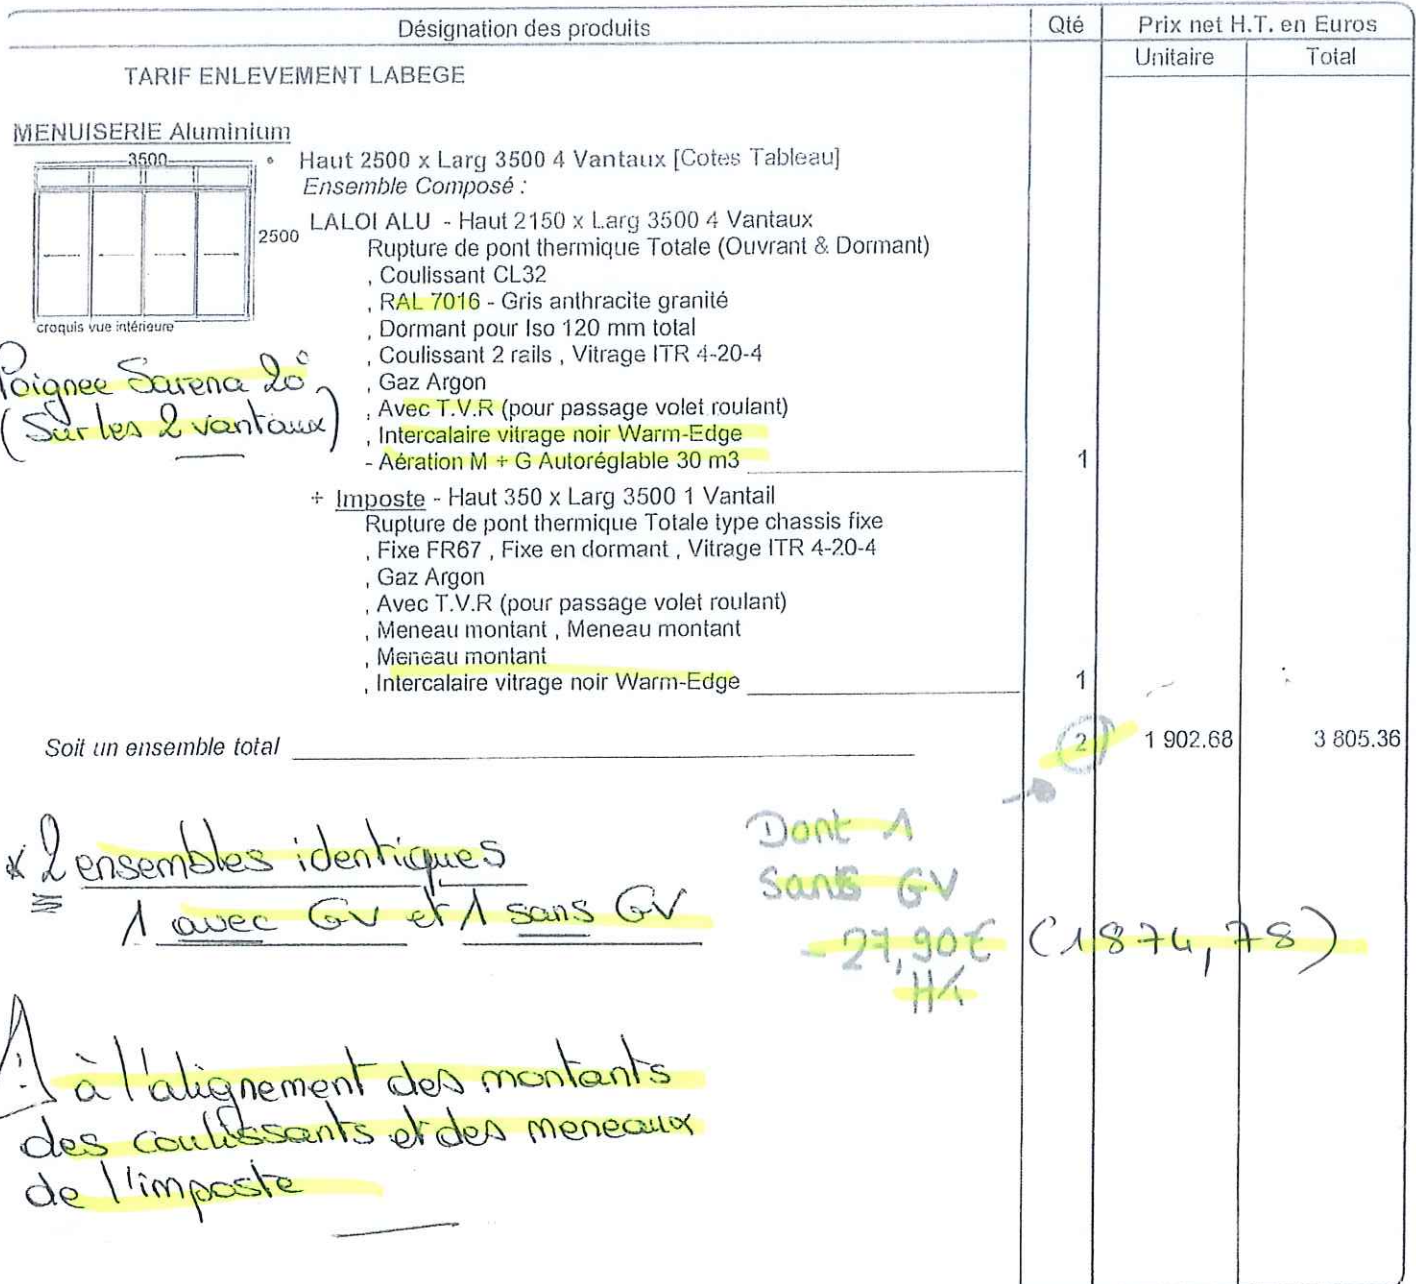 Désignation des produits Qté Prix net H.T. en Euros
Unitaire Total
TARIF ENLEVEMENT LABEGE
MENUISERIE Aluminium
3500
2500
croquis vue intérieure
Haut 2500 x Larg 3500 4 Vantaux [Cotes Tableau]
Ensemble Composé :
LALOI ALU - Haut 2150 x Larg 3500 4 Vantaux
Rupture de pont thermique Totale (Ouvrant & Dormant)
, Coulissant CL32
, RAL 7016 - Gris anthracite granité
, Dormant pour Iso 120 mm total
, Coulissant 2 rails , Vitrage ITR 4-20-4
, Gaz Argon
, Avec T.V.R (pour passage volet roulant)
, Intercalaire vitrage noir Warm-Edge
- Aération M + G Autoréglable 30 m3 1
Poignee Sarena 20°
(Sur les 2 vantaux)
+ Imposte - Haut 350 x Larg 3500 1 Vantail
Rupture de pont thermique Totale type chassis fixe
, Fixe FR67 , Fixe en dormant , Vitrage ITR 4-20-4
, Gaz Argon
, Avec T.V.R (pour passage volet roulant)
, Meneau montant , Meneau montant
, Meneau montant
, Intercalaire vitrage noir Warm-Edge 1
Soit un ensemble total 2 1 902.68 3 805.36
* 2 ensembles identiques
1 avec GV et 1 sans GV
Dont 1
Sans GV
- 27,90€ (1874,78)
HT
! à l'alignement des montants
des coulissants et des meneaux
de l'imposte